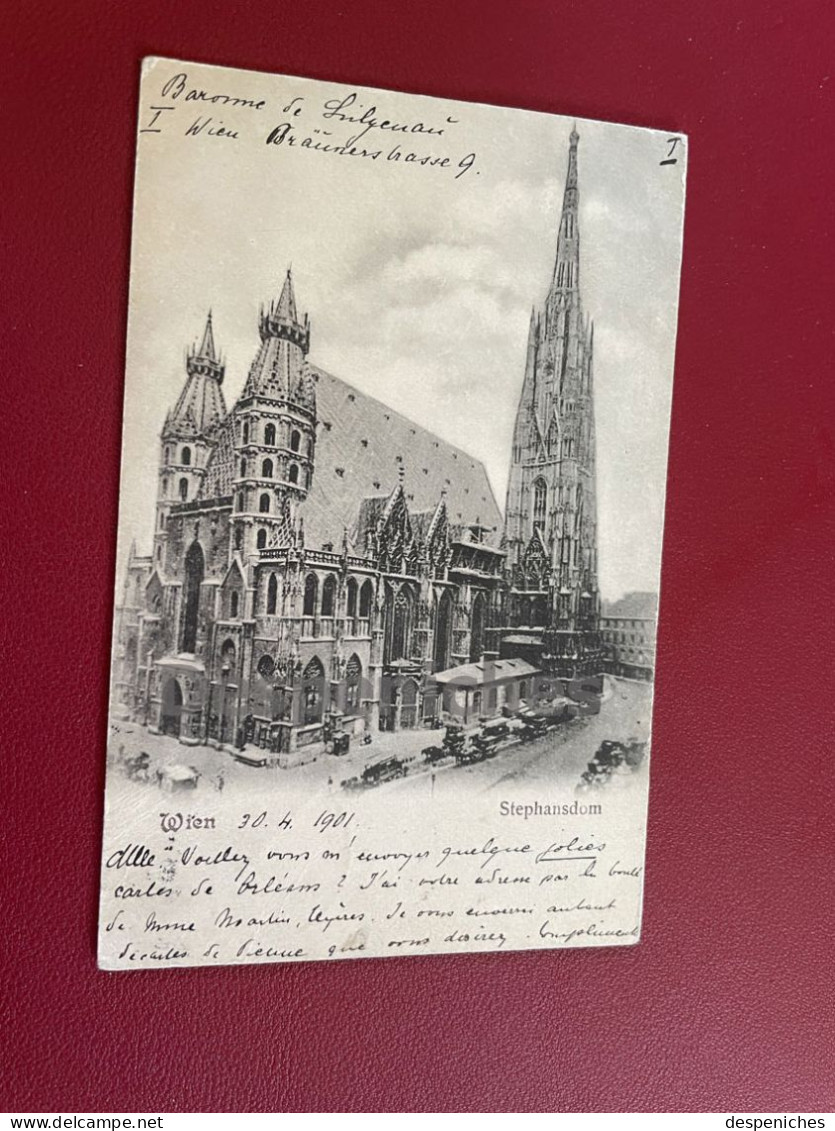 Baronne de
I Wien Bräunerstrasse 9.
I
Stephansdom
Wien 30. 4. 1901.
Mlle. Voulez vous m'envoyer quelque jolies
cartes de Orléans ? J'ai votre adresse par la
de Mme Martin, Je vous autant
de Vienne que vous désirez.
delcampe.net
despeniches